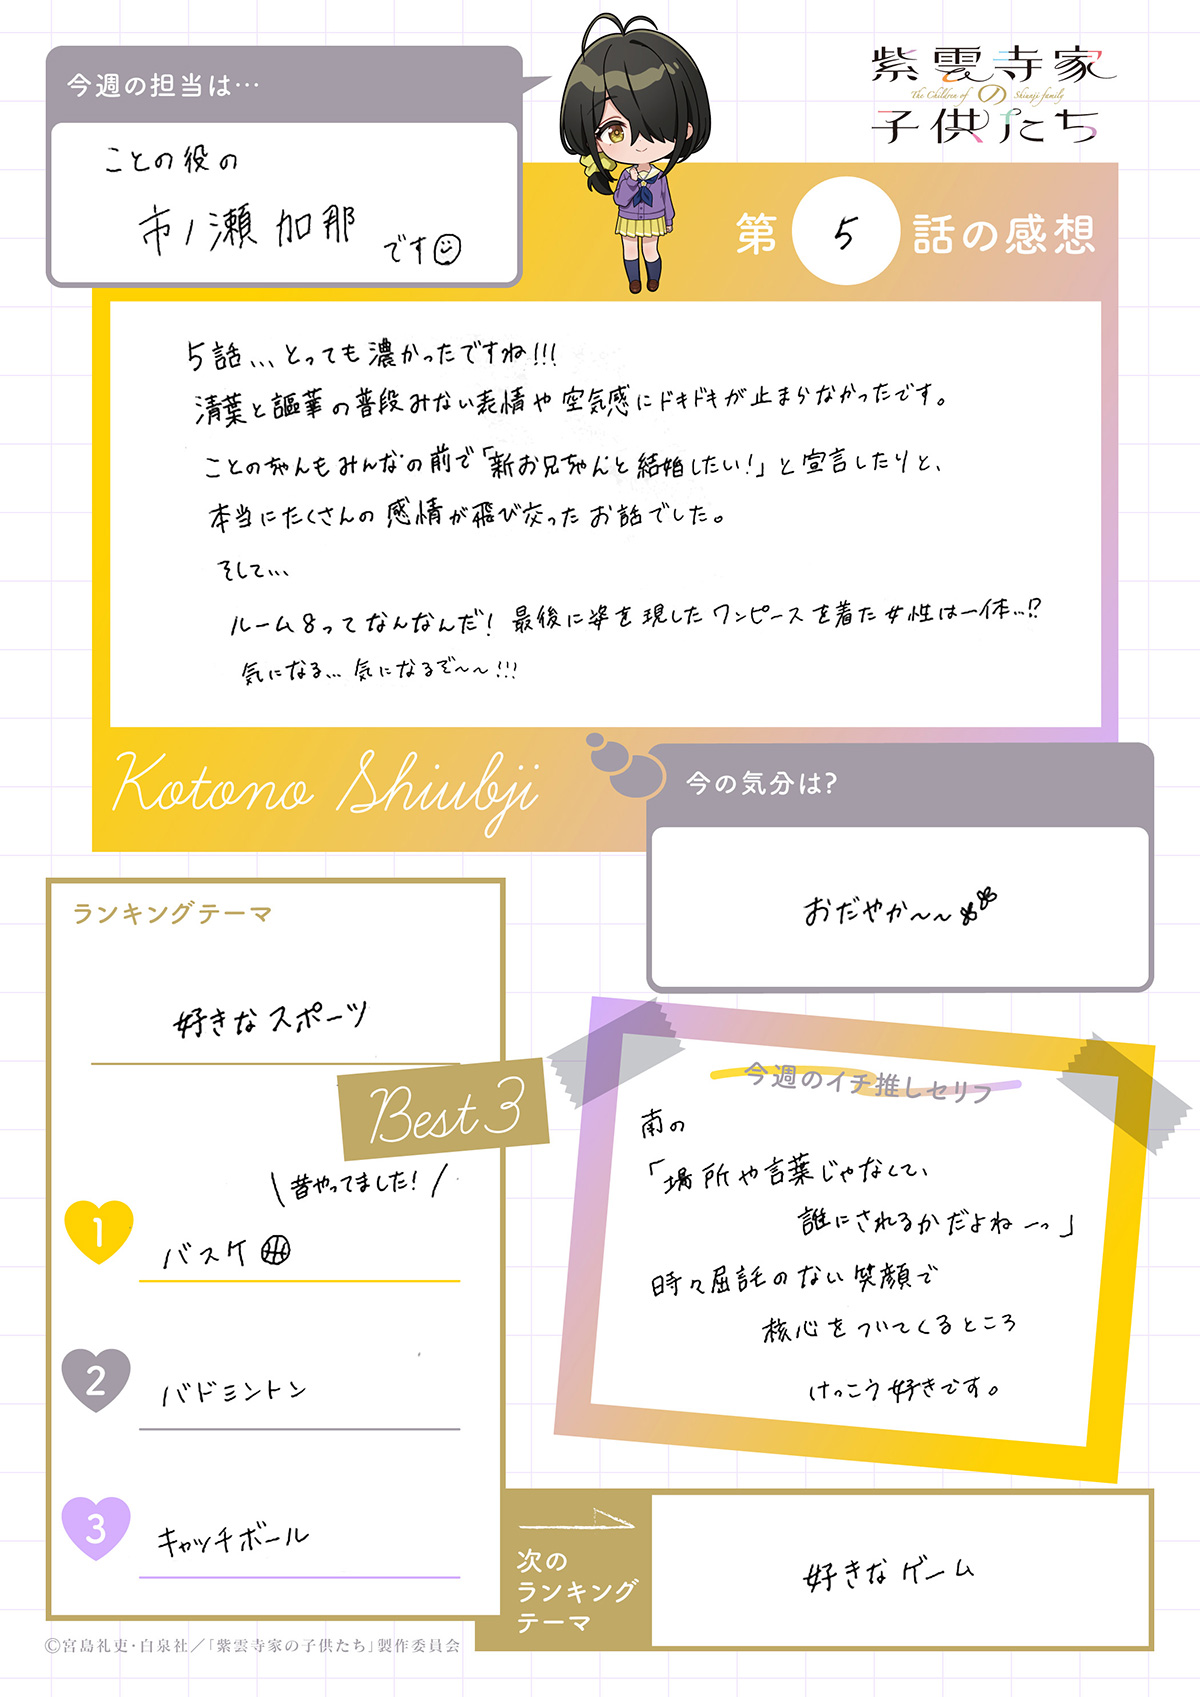 今週の担当は…
ことの役の
市ノ瀬 加那
です
紫雲寺家
The Children of の Shiunji family
子供たち
第5話の感想
5話...とっても濃かったですね!!!
清葉と謳華の普段みない表情や空気感にドキドキが止まらなかったです。
ことのちゃんもみんなの前で「新お兄ちゃんと結婚したい!」と宣言したりと、
本当にたくさんの感情が飛び交ったお話でした。
そして...
ルーム8ってなんなんだ! 最後に姿を現したワンピースを着た女性は一体...!?
気になる... 気になるぞ〜〜!!!
Kotono Shiubji
今の気分は?
おだやか〜〜
ランキングテーマ
好きなスポーツ
Best 3
\昔やってました!/
1 バスケ
2 バドミントン
3 キャッチボール
今週のイチ推しセリフ
南の
「場所や言葉じゃなくて、
誰にされるかだよねーっ」
時々屈託のない笑顔で
核心をついてくるところ
けっこう好きです。
次の
ランキング
テーマ
好きなゲーム
©宮島礼吏・白泉社/「紫雲寺家の子供たち」製作委員会